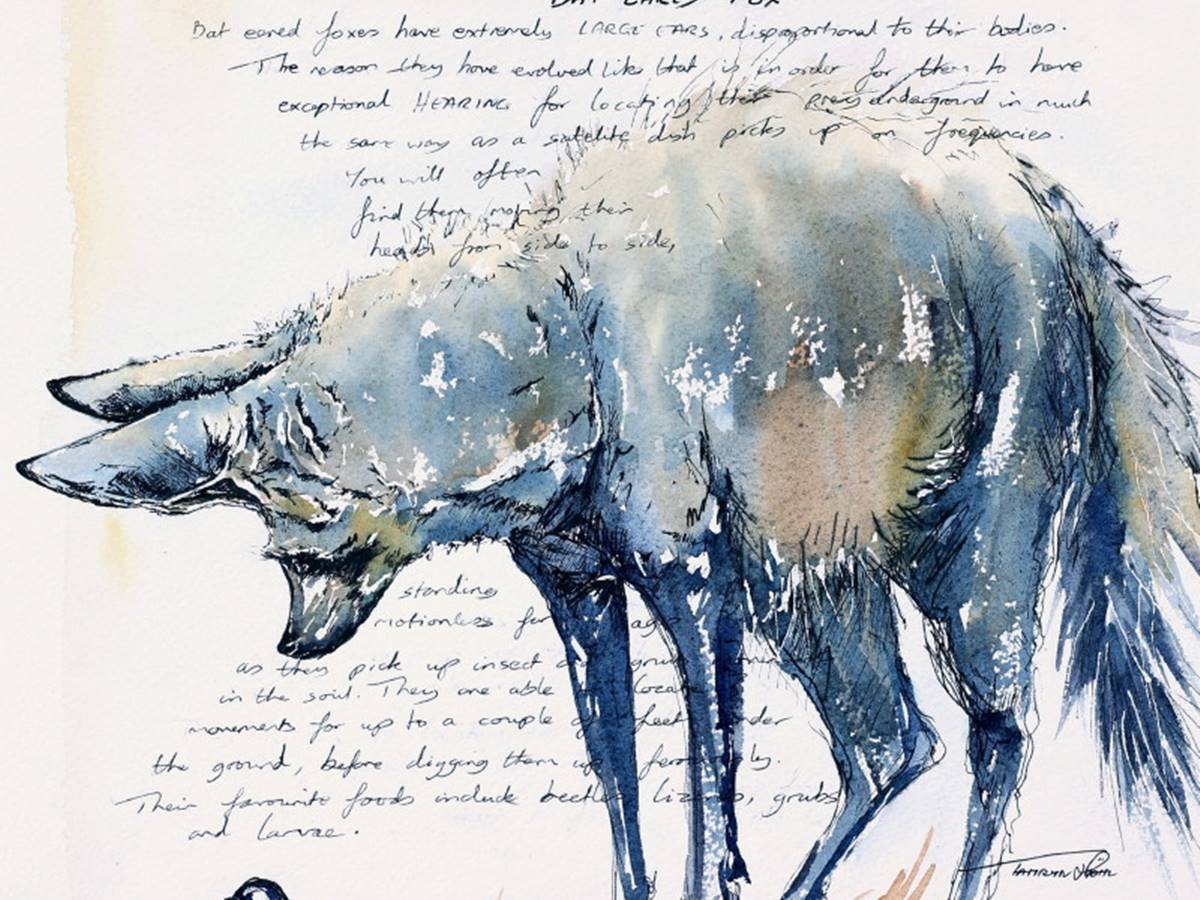 BAT EARED FOX
Bat eared foxes have extremely LARGE EARS, disproportional to their bodies.
The reason they have evolved like that is in order for them to have
exceptional HEARING for locating their prey underground in much
the same way as a satelite dish picks up on frequencies.
You will often
find them moving their
heads from side to side,
standing
motionless for ages
as they pick up insect grub
in the soul. They are able locate
movements for up to a couple of feet under
the ground, before digging them up
Their favourite foods include beetles lizards, grubs
and larvae.